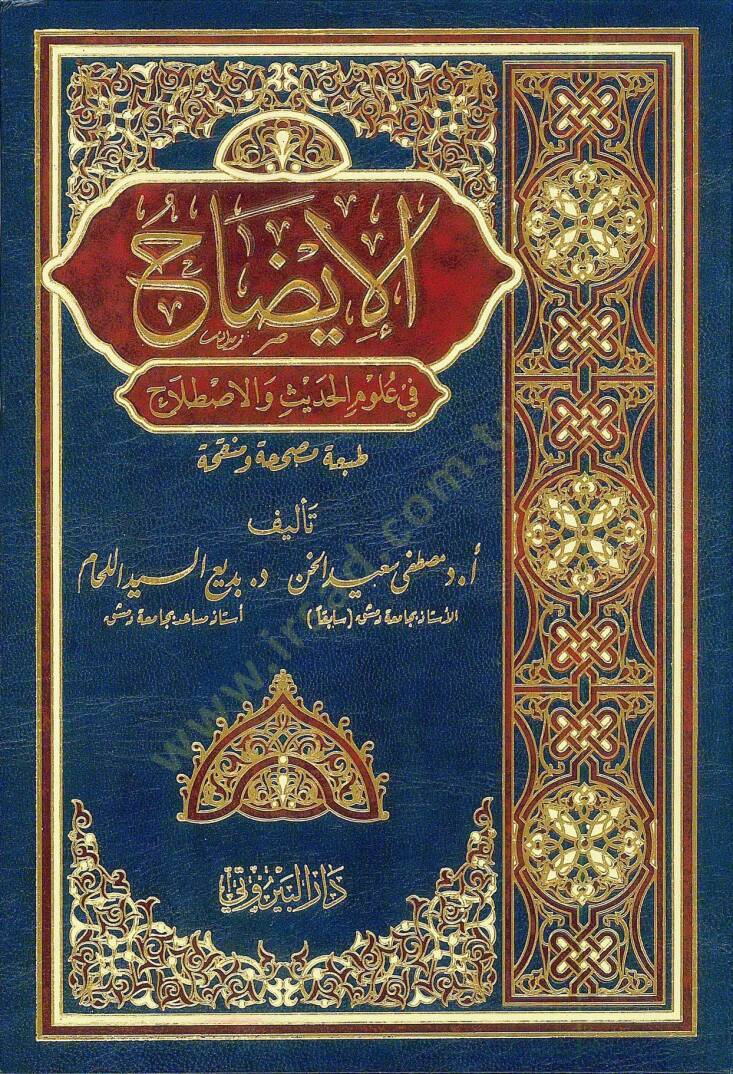 الإيضاح
في علوم الحديث والاصطلاح
طبعة مصححة ومنقحة
تأليف
أ.د مصطفى سعيد الخن د. بديع السيد اللحام
الأستاذ بجامعة دمشق (سابقاً) أستاذ مساعد بجامعة دمشق
دار البيروتي
www.irsad.com.tr